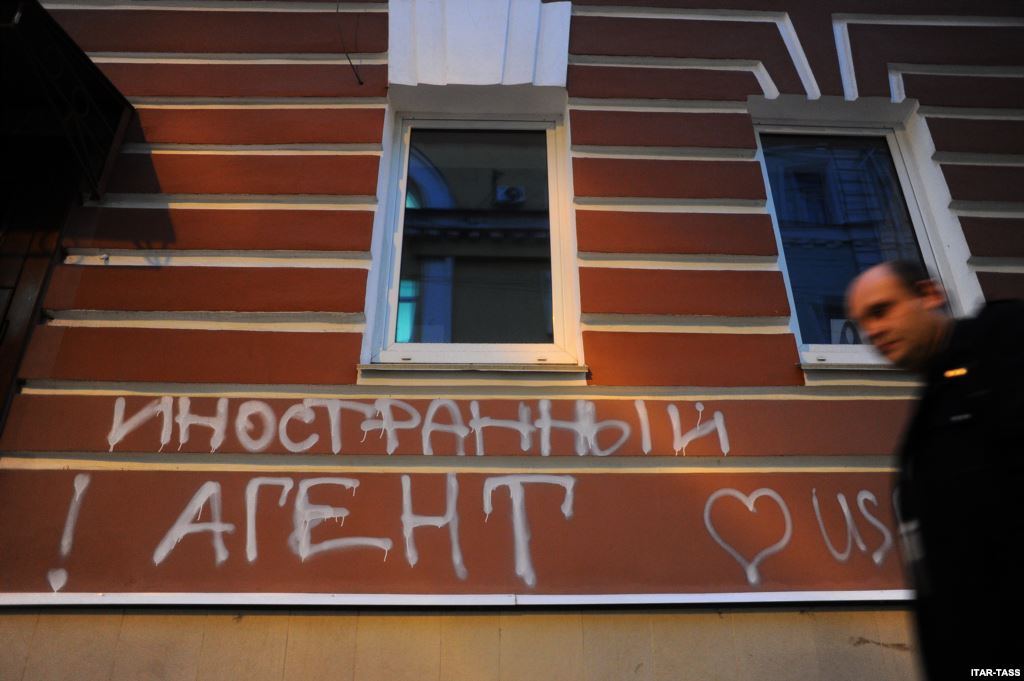 ИНОСТРАННЫЙ
! АГЕНТ ♡ US
ITAR-TASS